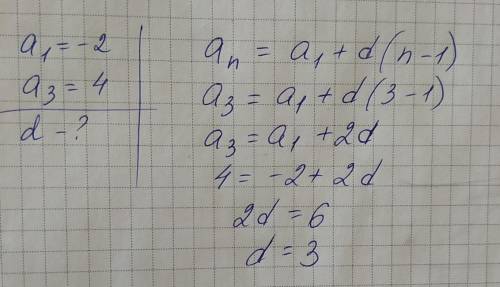 a₁ = -2
a₃ = 4
d - ?
aₙ = a₁ + d(n-1)
a₃ = a₁ + d(3-1)
a₃ = a₁ + 2d
4 = -2 + 2d
2d = 6
d = 3